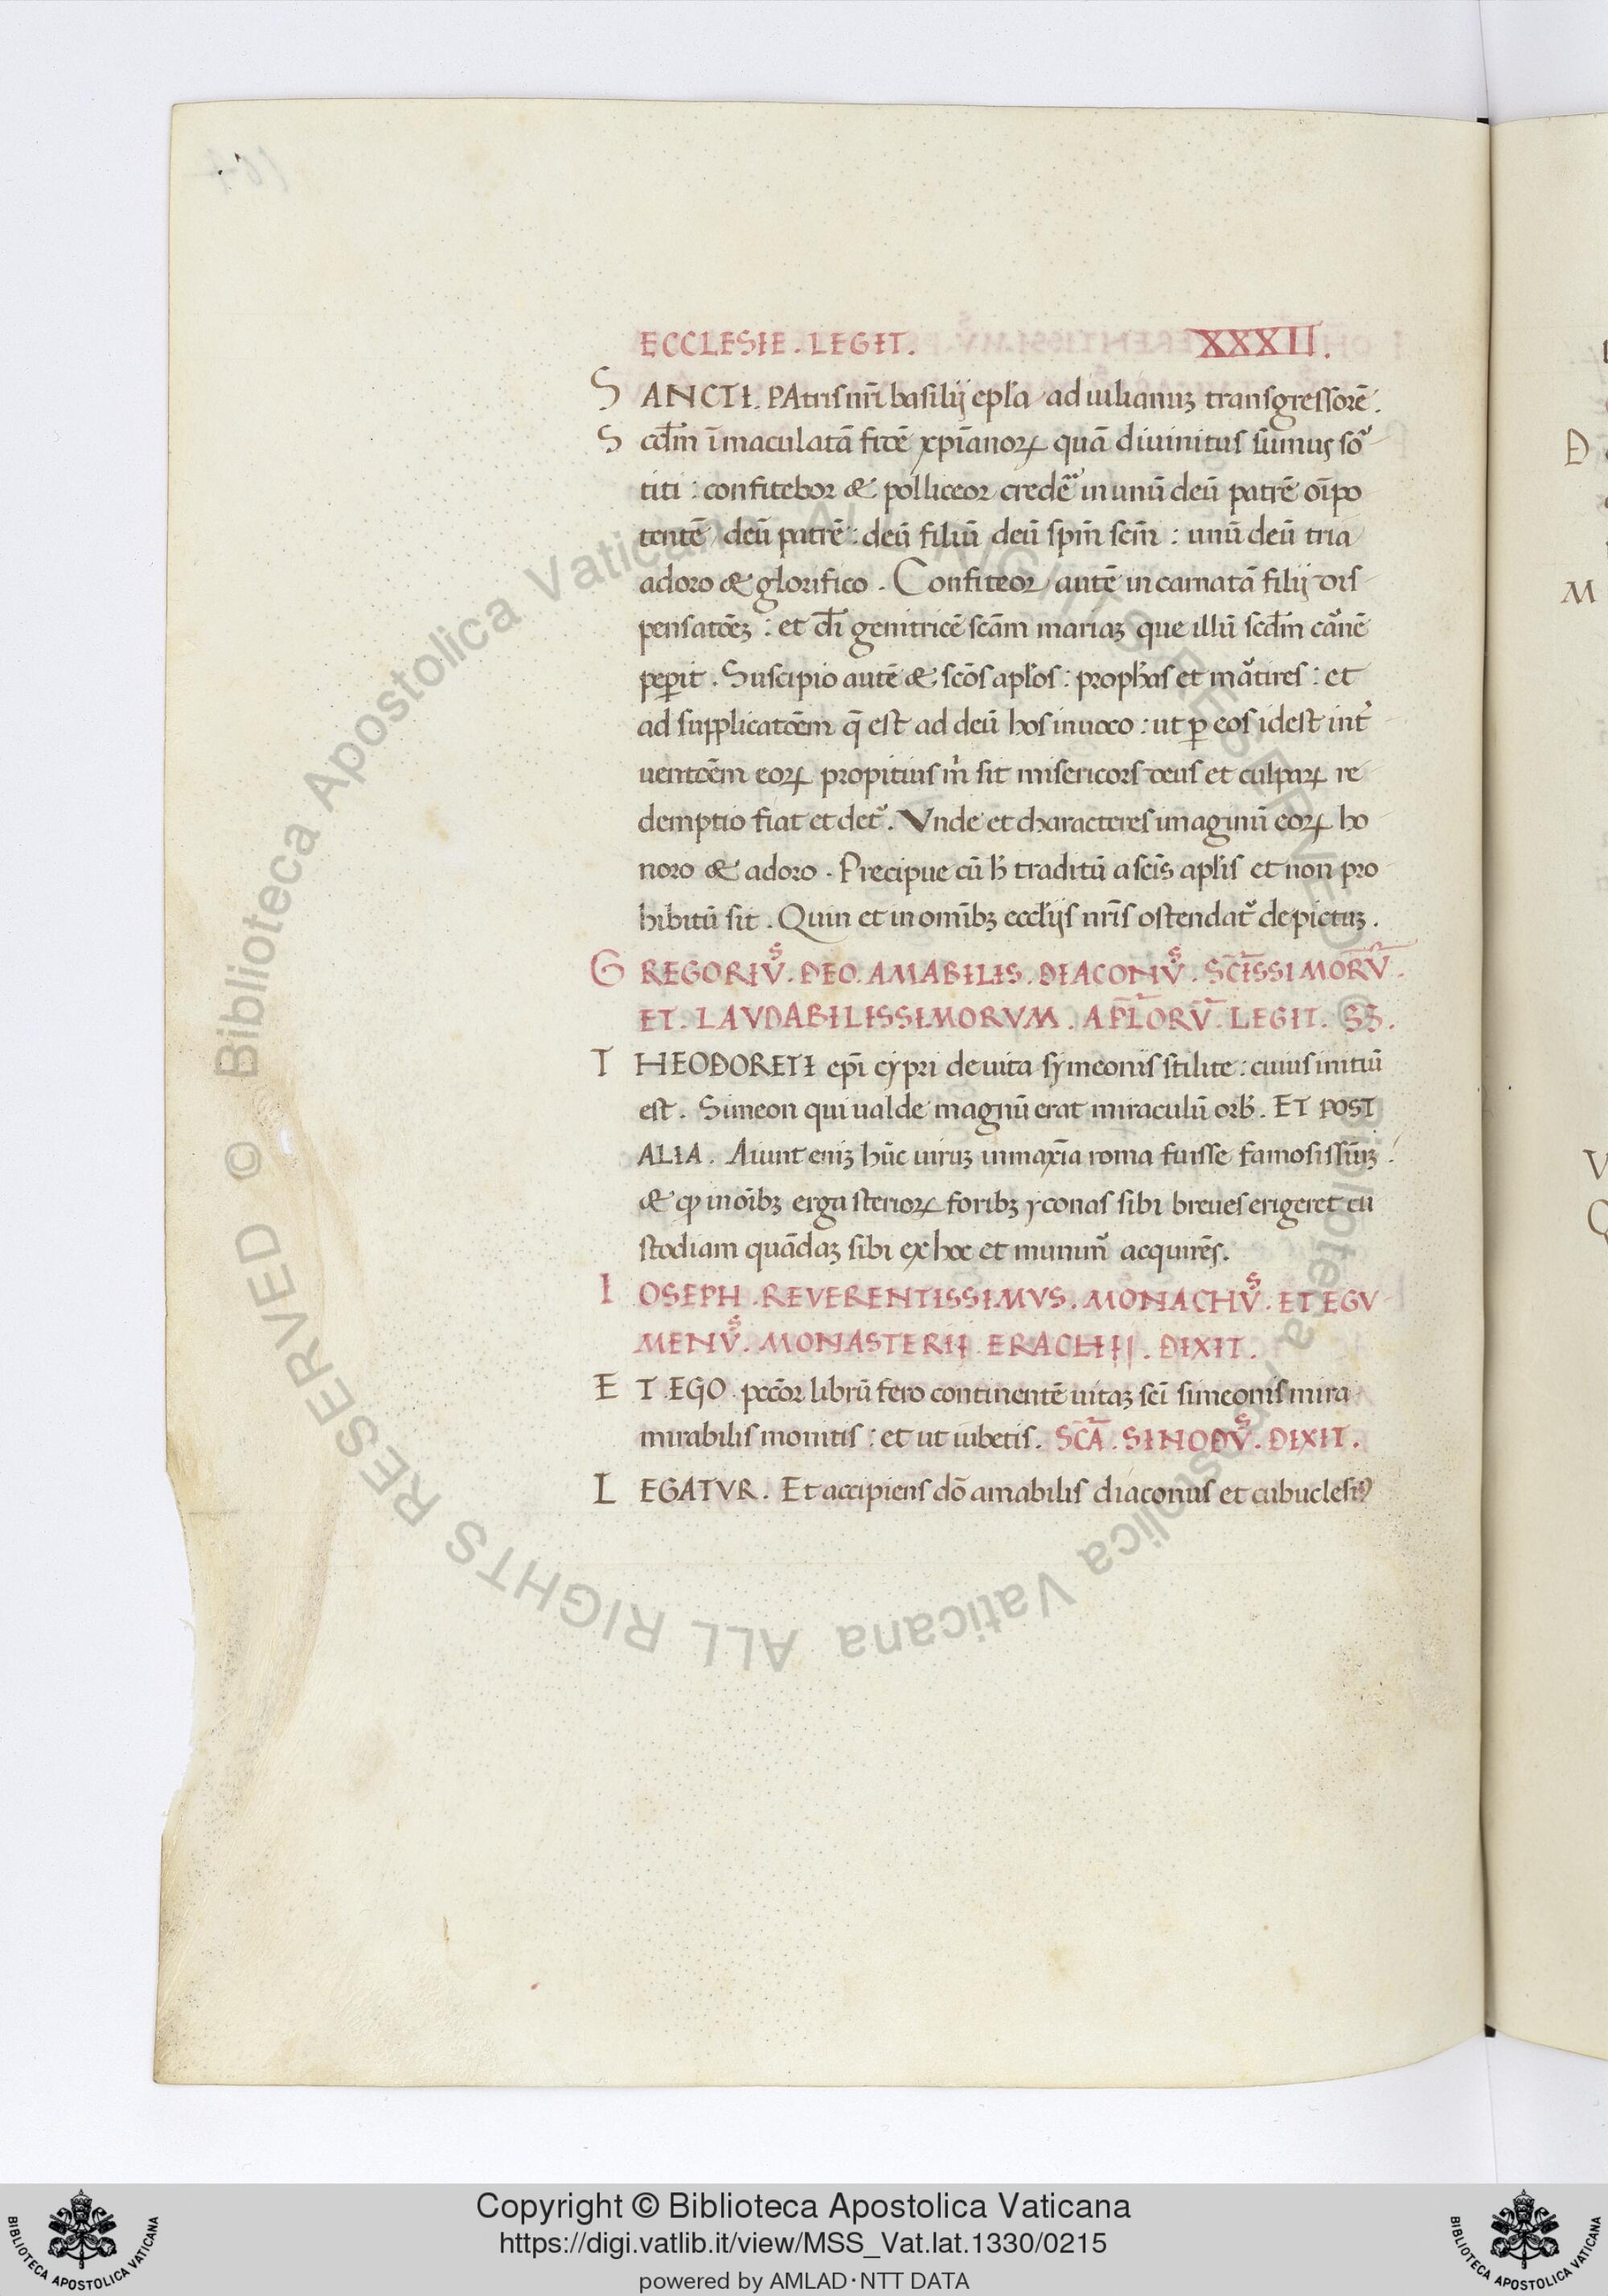 ECCLESIE. LEGIT. XXXII.
SANCTI. PAtris nr̄i basilij epl̄a ad iulianuʒ transgressorē.
Scd̄m īmaculatā fidē xp̄ianoꝝ quā diuinitus sumus so
titi : confitebor & polliceor credē in unū deū patrē oīpo
tentē deū patrē : deū filiū deū sp̄m sc̄m : unū deū tria
adoro & glorifico . Confiteor autē in carnatā filij dis
pensatōeʒ : et dī genitricē sc̄am mariaʒ que illū scd̄m carnē
peꝑit . Suscipio autē & sc̄os apl̄os : proph̄as et martires : et
ad supplicatōem q̄ est ad deū hos inuoco : ut ꝑ eos idest int̄
uentōem eoꝝ propitius m̄ sit misericors deus et culpaꝝ re
demptio fiat et det᷑. Vnde et characteres imaginū eoꝝ ho
noro & adoro . Precipue cū h̄ traditū a sc̄is apl̄is et non pro
hibitū sit . Quin et in omībʒ eccl̄ijs nr̄is ostendat᷑ depictuʒ .
GREGORIVS. DEO. AMABILIS. DIACONVS. SC̄ISSIMORV̄.
ET. LAVDABILISSIMORVM. APL̄ORV̄. LEGIT. SS.
THEODORETI ep̄i cypri de uita symeonis stilite : cuius initiū
est. Simeon qui ualde magnū erat miraculū orb̄. ET POST
ALIA. Aiunt eniʒ hūc uiruʒ in maxīa roma fuisse famosissīuʒ :
& ꝙ in oībʒ ergasterioꝝ foribʒ yconas sibi breues erigeret cu
stodiam quādaʒ sibi ex hoc et munim̄ acquirēs.
IOSEPH. REVERENTISSIMVS. MONACHVS. ET EGV
MENVS. MONASTERII ERACLHII. DIXIT.
ET. EGO. pccōr librū fero continentē uitaʒ sc̄i simeonis mira
mirabilis monitis : et ut iubetis. SC̄A. SINODVS. DIXIT.
LEGATVR. Et accipiens dō amabilis diaconus et cubuclesiꝰ
Copyright © Biblioteca Apostolica Vaticana
https://digi.vatlib.it/view/MSS_Vat.lat.1330/0215
powered by AMLAD·NTT DATA
BIBLIOTECA APOSTOLICA VATICANA
BIBLIOTECA APOSTOLICA VATICANA
© Biblioteca Apostolica Vaticana ALL RIGHTS RESERVED
© Biblioteca Apostolica Vaticana ALL RIGHTS RESERVED